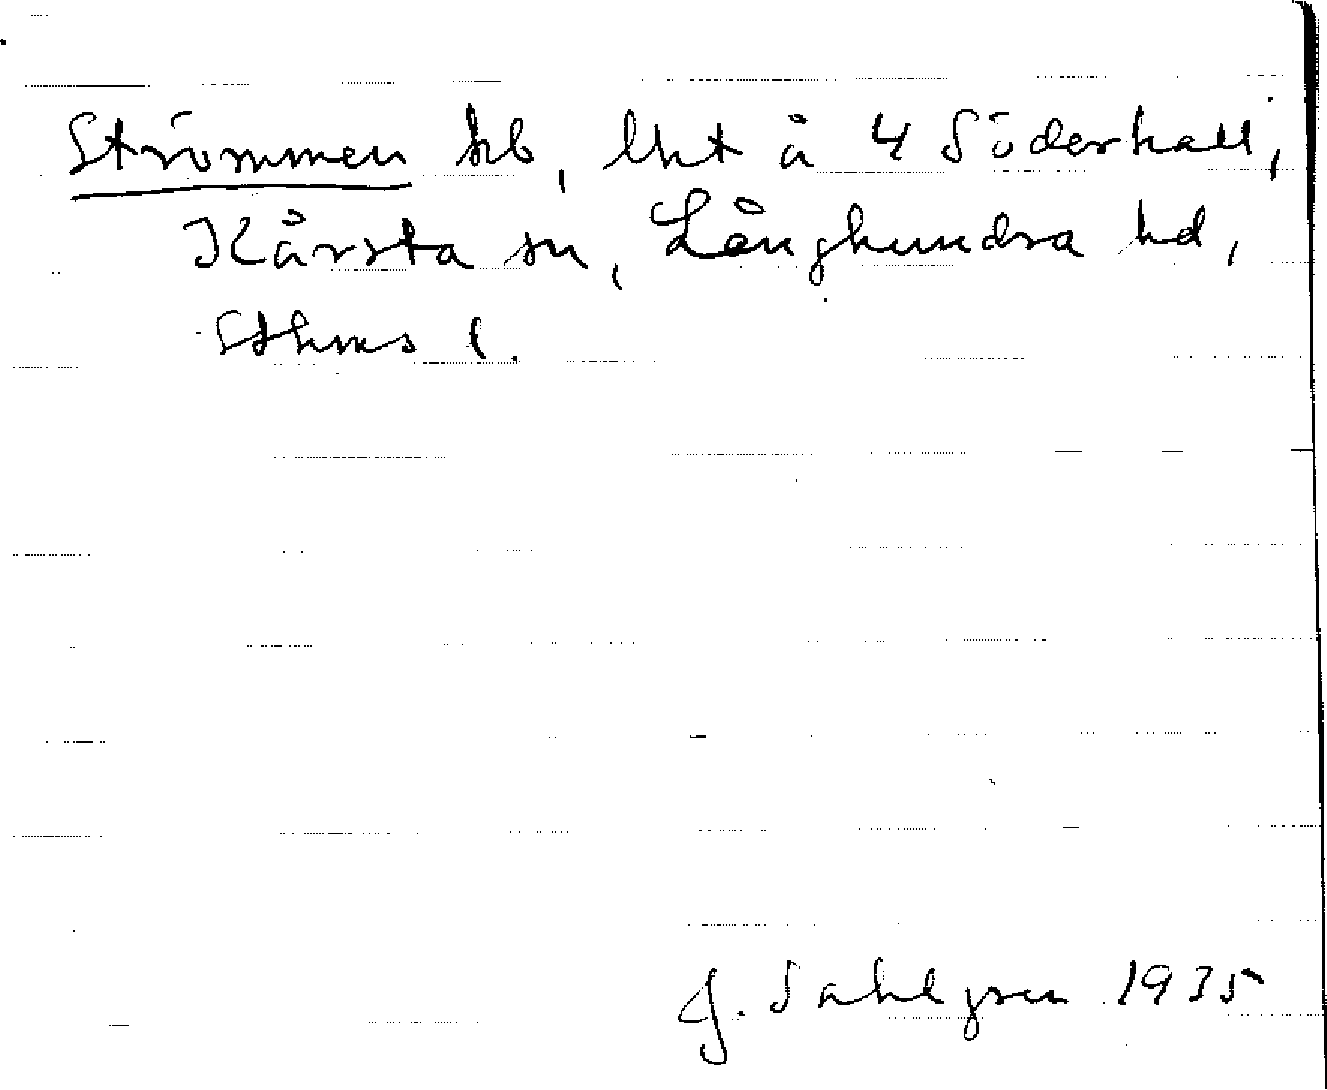 Strömmen hb, lht å 4 Söderhall,
Kårsta sn, Långhundra hd,
Sthms l.
J. Sahlgren 1935